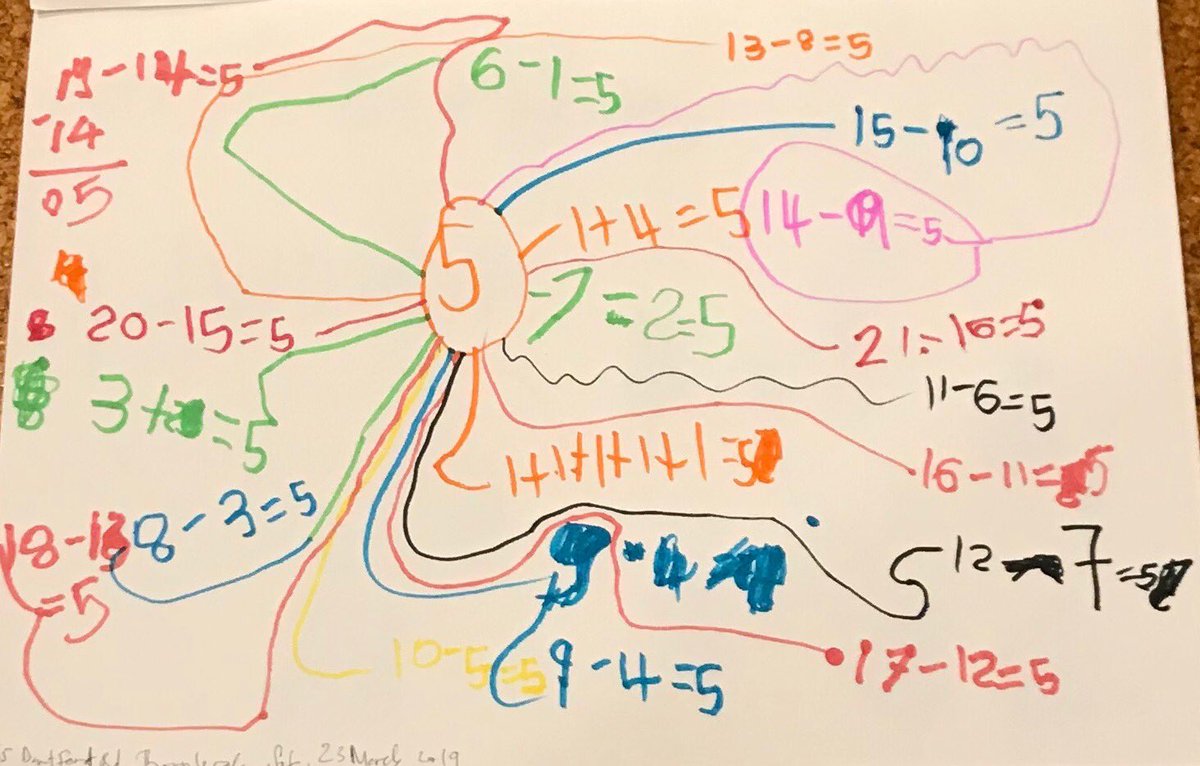 19-14=5
-14
05
6-1=5
13-8=5
15-10=5
1+4=5
14-9=5
-7=2=5
20-15=5
21-16=5
3+ =5
11-6=5
1+1+1+1+1=5
16-11=5
18-13
=5
8-3=5
5
12-7=5
10-5=5
9-4=5
17-12=5
23 March 2019